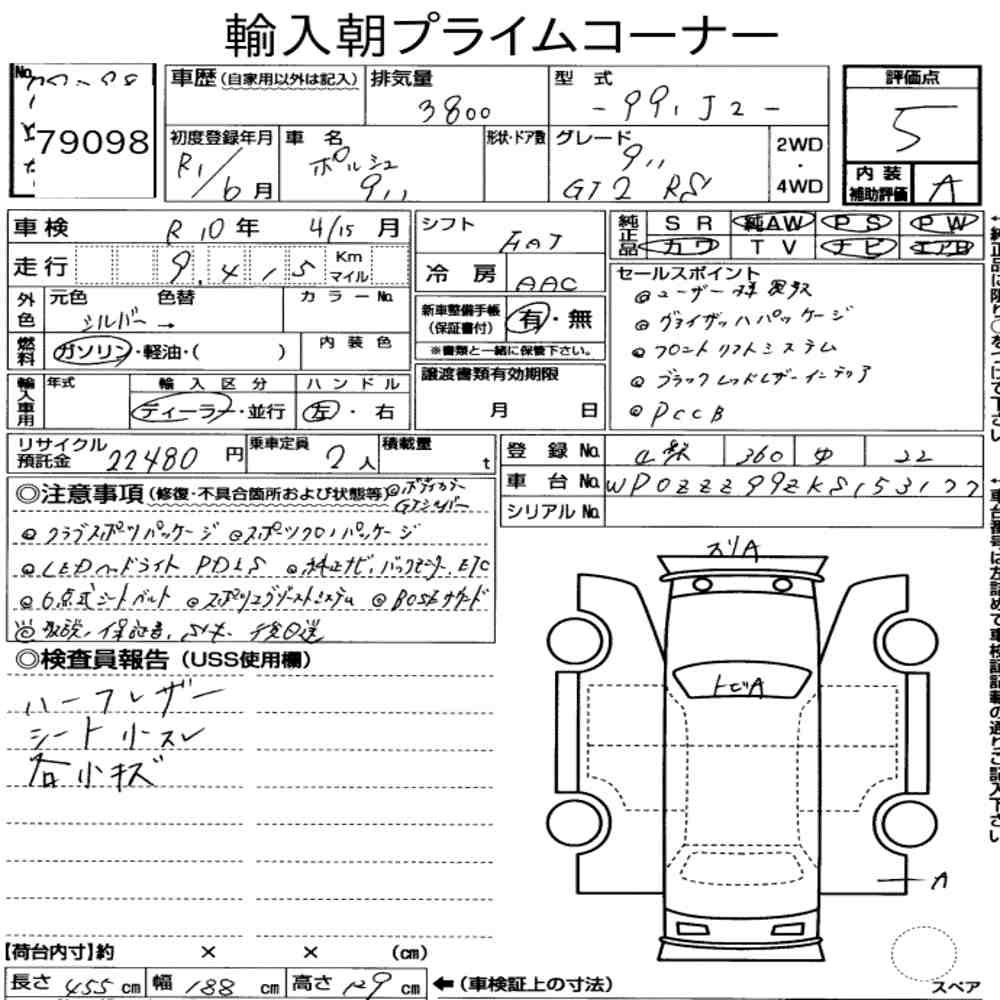 輸入朝プライムコーナー
No.
79098
車歴(自家用以外は記入)
排気量
3800
型式
-991J2-
評価点
5
初度登録年月
R1/6月
車名
ポルシェ
911
形状・ドア数
グレード
911
GT2 RS
2WD
・
4WD
内装
補助評価
A
車検
R10年 4/15月
シフト
FAT
純正品
SR 純AW PS PW
カワ TV ナビ エアB
走行
9,415
Km
マイル
冷房
AAC
セールスポイント
◎ユーザー様買取
◎ヴァイザッハパッケージ
◎フロントリフトシステム
◎ブラックレッドレザーインテリア
◎PCCB
外色
元色
シルバー→
色替
カラーNo.
新車整備手帳
(保証書付)
有・無
※書類と一緒に保管下さい。
燃料
ガソリン・軽油・( )
内装色
譲渡書類有効期限
月 日
輸入車用
年式
輸入区分
ディーラー・並行
ハンドル
左・右
リサイクル
預託金
22480円
乗車定員
2人
積載量
t
登録No.
360 22
車台No.
WP0ZZZ99ZKS153177
シリアルNo.
◎注意事項(修復・不具合箇所および状態等)
◎ボディカラー
GTシルバー
◎クラブスポーツパッケージ ◎スポーツクロノパッケージ
◎LEDヘッドライト PDLS ◎純正ナビ、バックセンサー、ETC
◎6点式シートベルト ◎スポーツエグゾーストシステム ◎BOSEサラウンド
取説、保証書、 後日送
◎検査員報告(USS使用欄)
ハーフレザー
シート小スレ
各小キズ
スリA
トビA
A
スペア
【荷台内寸】約 × × (cm)
長さ 455 cm 幅 188 cm 高さ 129 cm
←(車検証上の寸法)